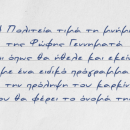 Πολιτεία τιμά τη μνήμη
της Φώφης Γεννηματά
όπως θα ήθελε και εκείν
με ένα ειδικό πρόγραμμα
την πρόληψη του καρκίν
ου θα φέρει το όνομά τη